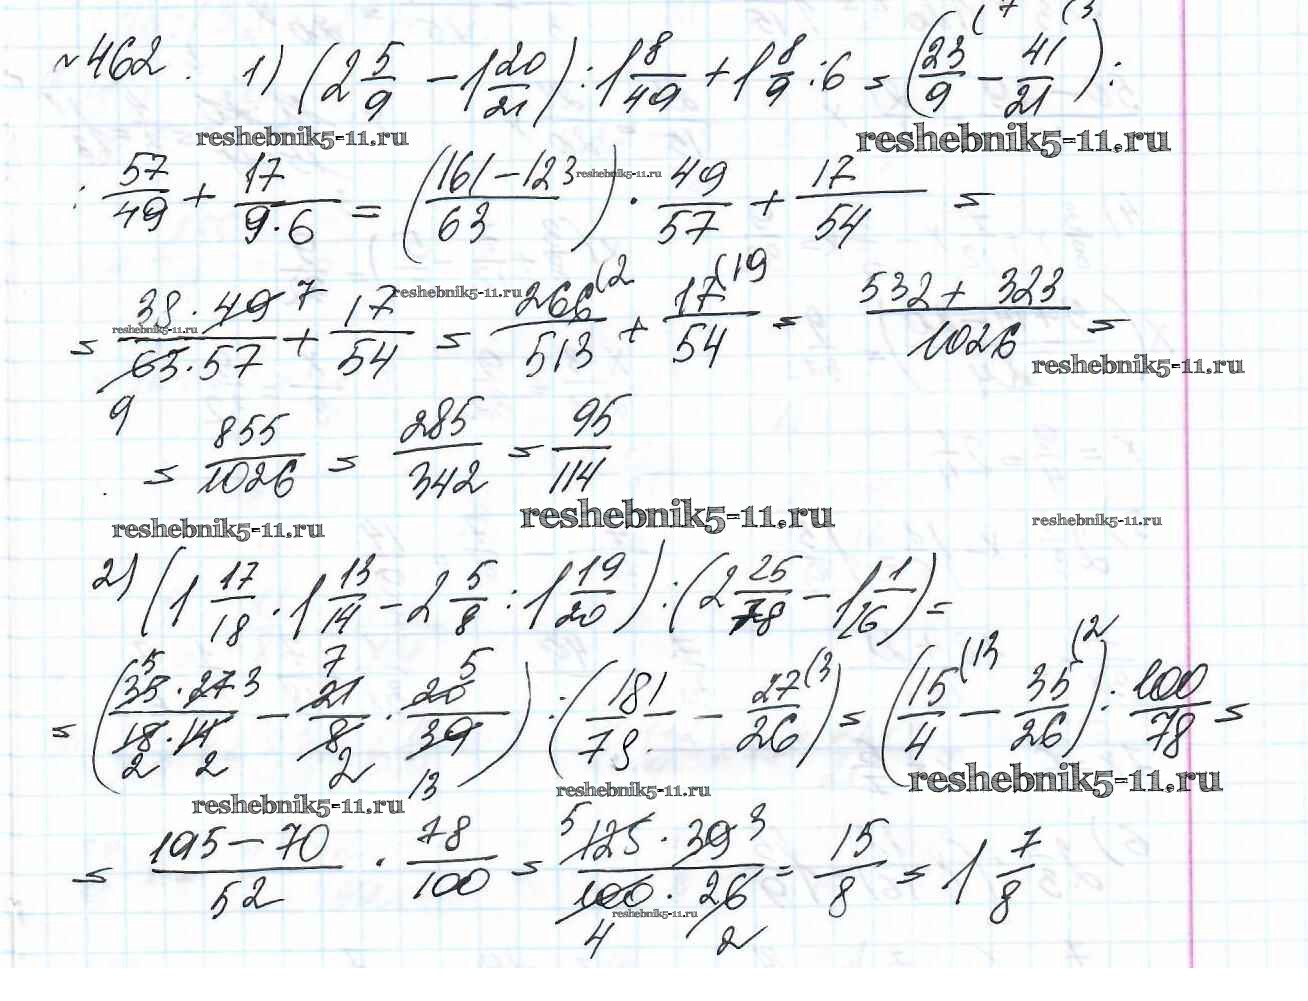 №462. 1) (2 5/9 − 1 20/21) : 1 8/49 + 1 8/9 : 6 = (23/9 (7 − 41/21 (3) :
reshebnik5-11.ru reshebnik5-11.ru
: 57/49 + 17/(9·6) = ((161−123)/63) · 49/57 + 17/54 =
reshebnik5-11.ru
= (38·49 7)/(63·57) + 17/54 = 266/513 (2 + 17/54 (19 = (532+323)/1026 =
reshebnik5-11.ru reshebnik5-11.ru reshebnik5-11.ru
9
= 855/1026 = 285/342 = 95/114
reshebnik5-11.ru reshebnik5-11.ru reshebnik5-11.ru
2) (1 17/18 · 1 13/14 − 2 5/8 : 1 19/20) : (2 25/78 − 1 1/26) =
= ((5 35·27 3)/(18·14) − 7 21/8 · 5 20/39) : (181/78 − 27/26 (3) = (15/4 (13 − 35/26 (2) : 100/78 =
2 2 2 13
reshebnik5-11.ru reshebnik5-11.ru reshebnik5-11.ru
= (195−70)/52 · 78/100 = (5 125·39 3)/(100·26) = 15/8 = 1 7/8
reshebnik5-11.ru
4 2